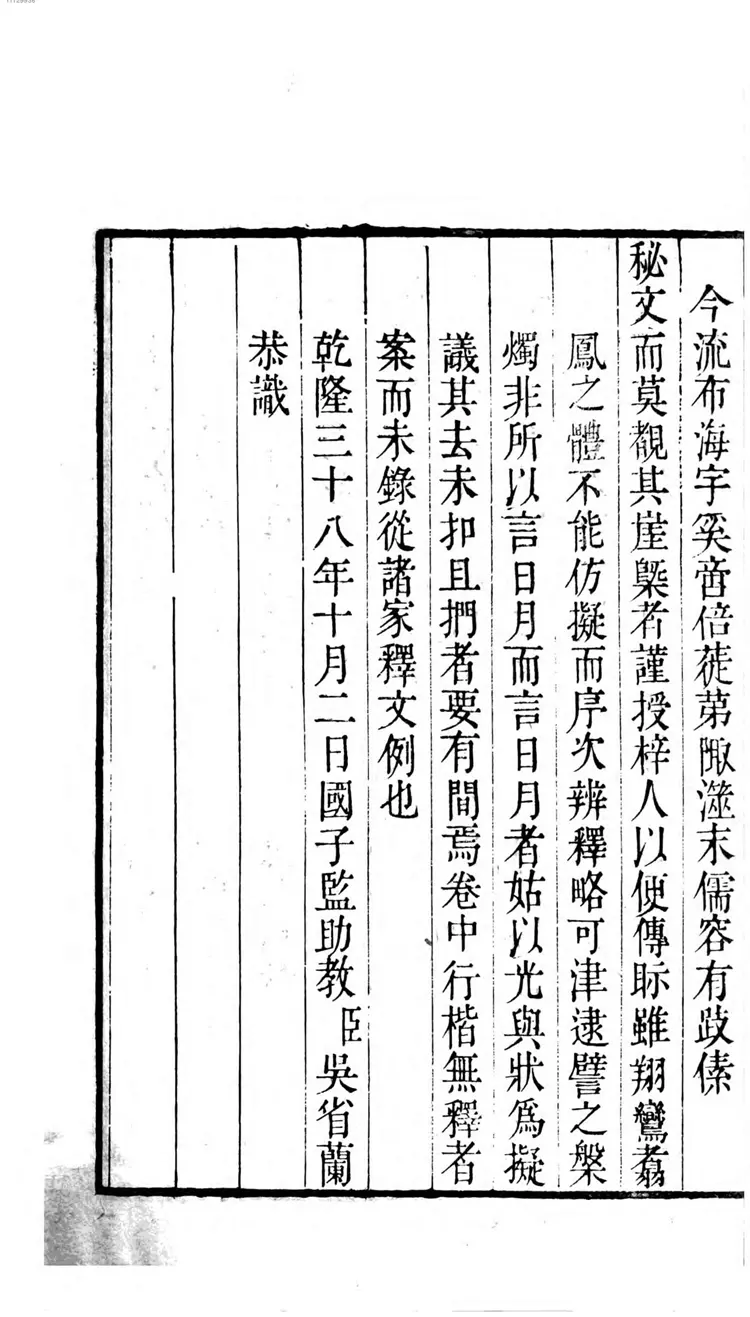 今流布海宇奚啻倍蓰第陬澨末儒容有歧傃
秘文而莫覩其崖槩者謹授梓人以便傳眎雖翔鸞翥
鳳之體不能仿擬而序次辨釋略可津逮譬之槃
燭非所以言日月而言日月者姑以光與狀爲擬
議其去未扣且捫者要有間焉卷中行楷無釋者
案而未錄從諸家釋文例也
乾隆三十八年十月二日國子監助教臣吳省蘭
恭識